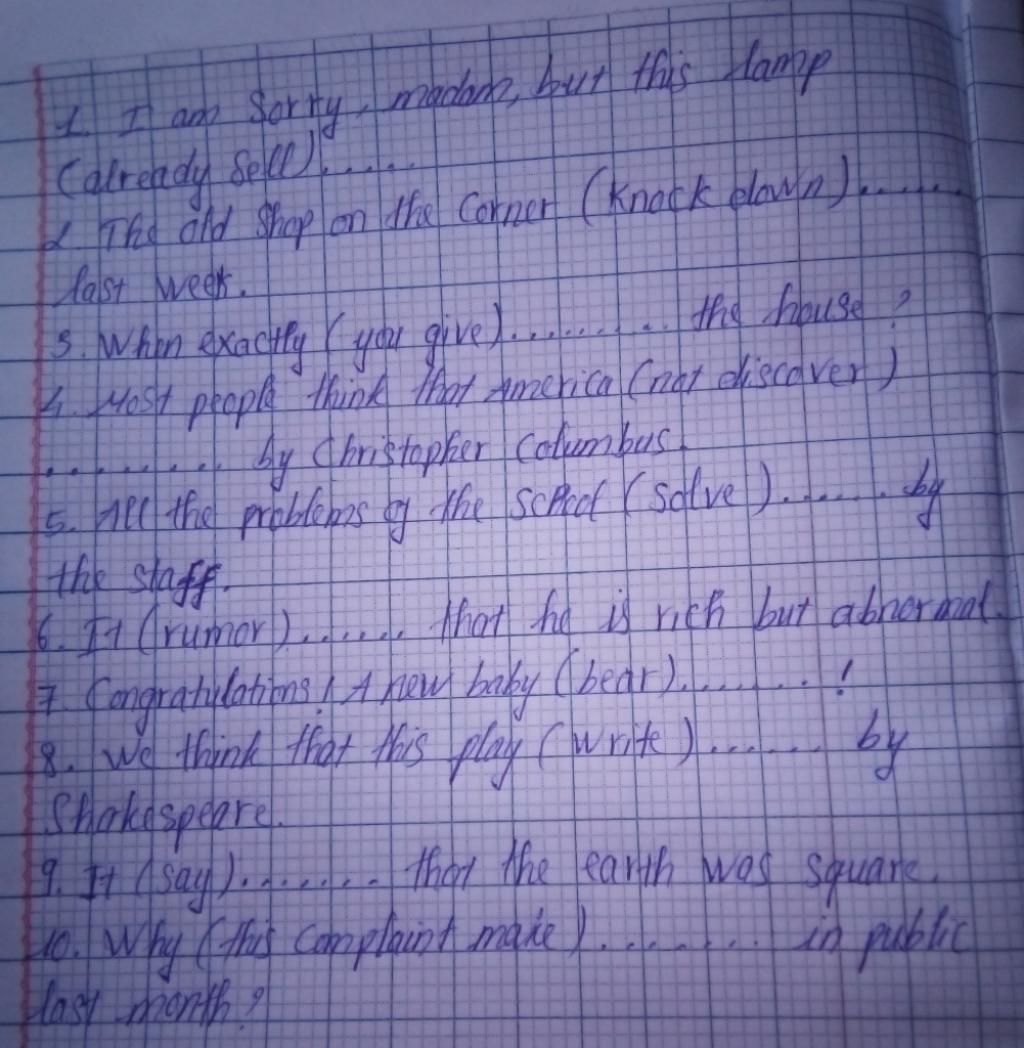 1. I am Sorry, madam, but this lamp
(already sell)......
2. The old shop on the Corner (knock down).......
last week.
3. When exactly (you give).......... the house?
4. Most people think that America (not discover)
.......... by Christopher Columbus.
5. All the problems of the school (solve)....... by
the staff.
6. It (rumor)....... that he is rich but abnormal.
7. Congratulations! A new baby (bear)........ !
8. We think that this play (write)....... by
Shakespeare.
9. It (say)........ that the earth was square.
10. Why (this complaint make)......... in public
last month?